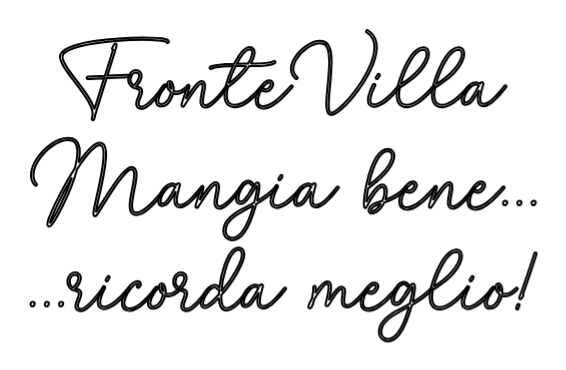 Fronte Villa
Mangia bene...
...ricorda meglio!